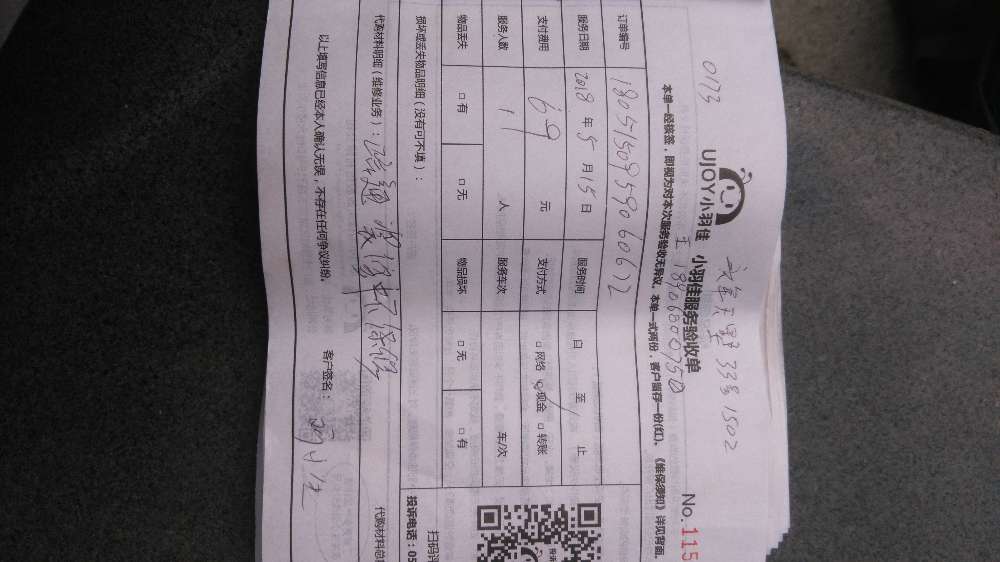 0173
UJOY小羽佳 小羽佳服务验收单
33号1502
No.115
本单一经核签，即视为对本次服务验收无异议。本单一式两份，客户留存一份(红)。《维保须知》详见背面。
订单编号 1805150959060612
服务日期 2018 年 5 月 15 日 服务时间 自 至 止
支付费用 69 元 支付方式 □网络 □现金 □转账
服务人数 1 人 服务车次 车/次
物品丢失 □有 □无 物品损坏 □无 □有
损坏或丢失物品明细（没有可不填）：
扫码评
投诉电话：05
代购材料明细（维修业务）： 不保修
代购材料总
以上填写信息已经本人确认无误，不存在任何争议纠纷。 客户签名：